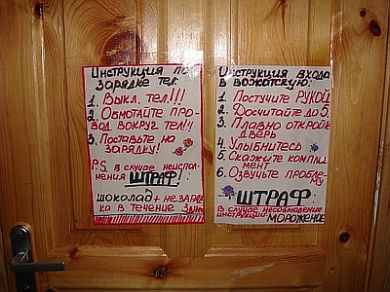 Инструкция по
зарядке тел
1. Выкл. тел!!!
2. Обмотайте про-
вод вокруг тел!!!
3. Поставьте на
зарядку!
P.S в случае неиспол-
нения ШТРАФ!
шоколад + незаряд-
ка в течение
Инструкция входа
в вожатскую:
1. Постучите РУКОЙ
2. Досчитайте до 5.
3. Плавно откройте
дверь
4. Улыбнитесь
5. Скажите компли-
мент
6. Озвучьте пробле-
му
ШТРАФ
в случае несоблюдения
инструкции МОРОЖЕНОЕ